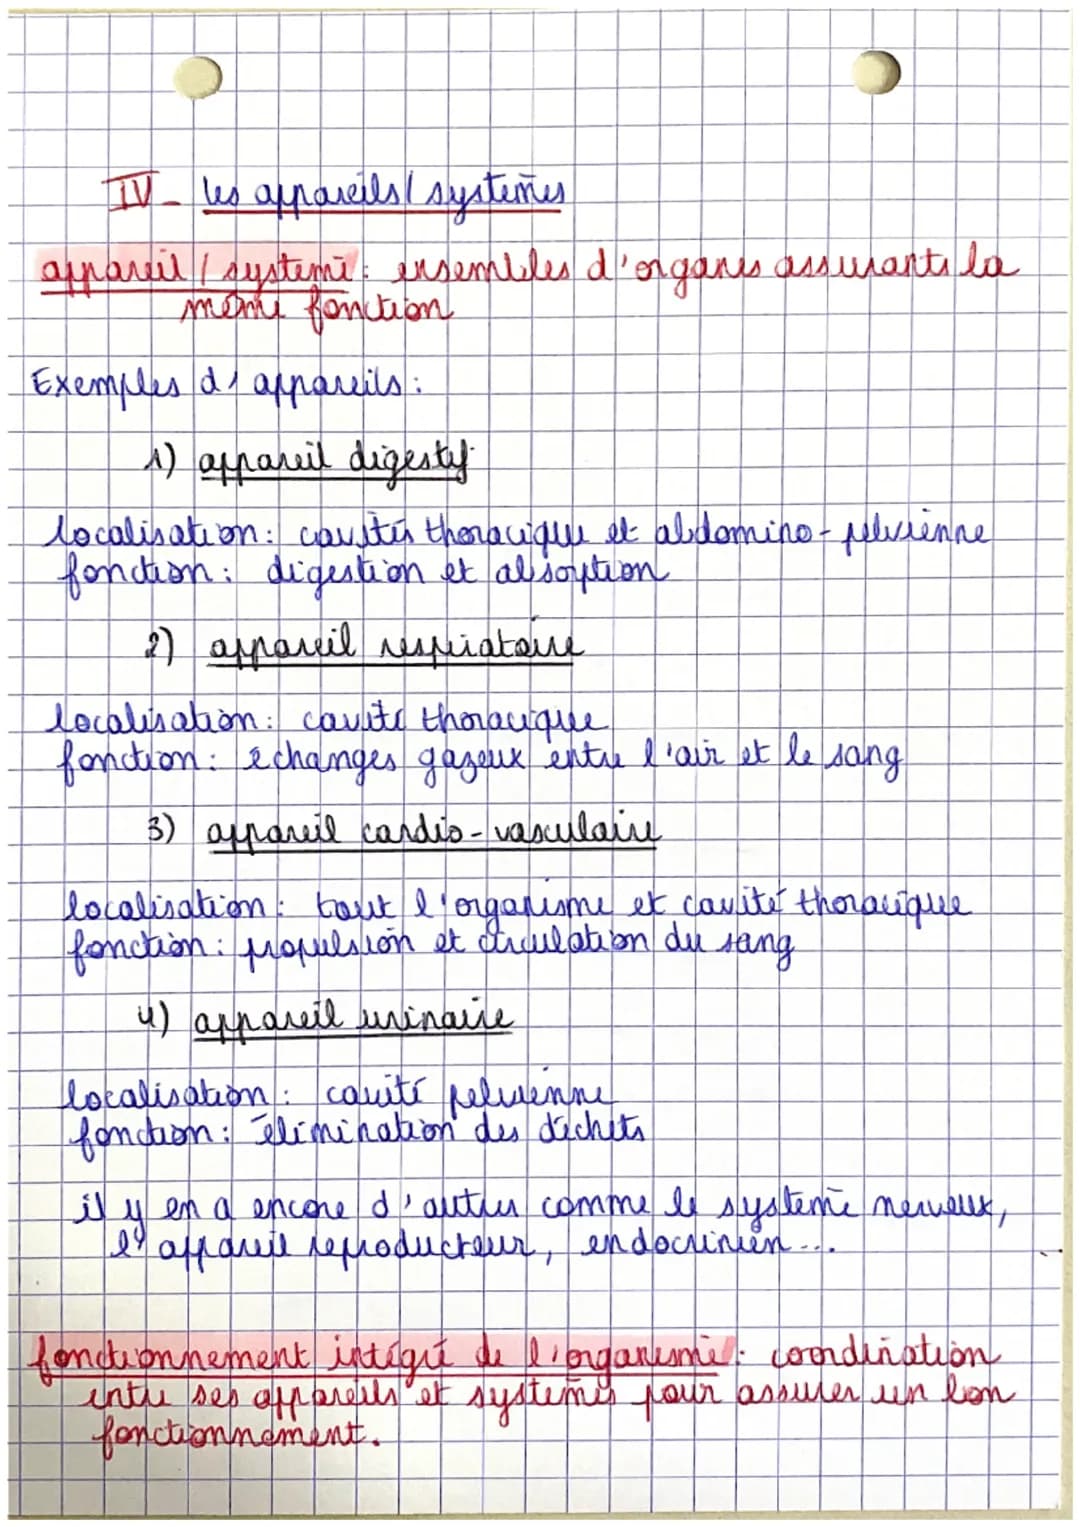 IV - les appareils / systèmes
appareil / système : ensembles d'organes assurants la
même fonction
Exemples d' appareils :
1) appareil digestif
localisation : cavités thoracique et abdomino-pelvienne
fonction : digestion et absorption
2) appareil respiratoire
localisation : cavité thoracique
fonction : échanges gazeux entre l'air et le sang
3) appareil cardio-vasculaire
localisation : tout l'organisme et cavité thoracique
fonction : propulsion et circulation du sang
4) appareil urinaire
localisation : cavité pelvienne
fonction : élimination des déchets
il y en a encore d'autres comme le système nerveux,
l' appareil reproducteur, endocrinien...
fonctionnement intégré de l'organisme : coordination
entre ses appareils et systèmes pour assurer un bon
fonctionnement.